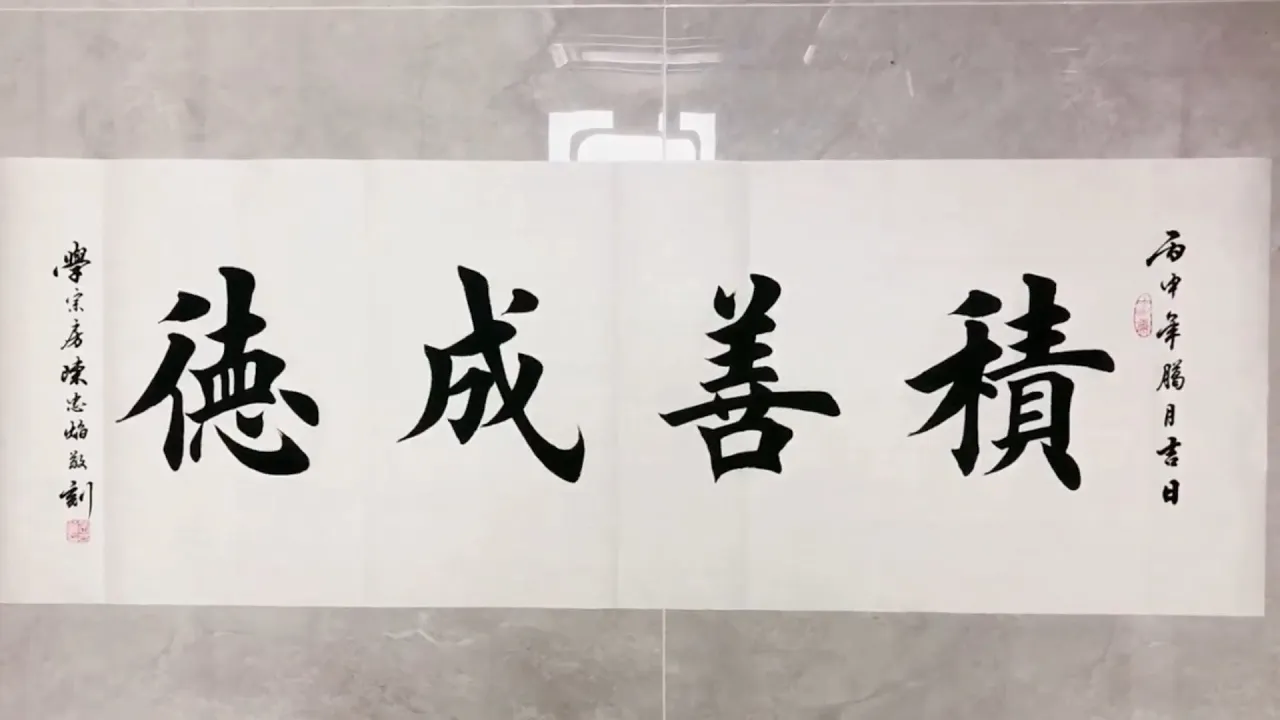 丙申年臈月吉日
積善成德
學宗房陳忠焰敬刻